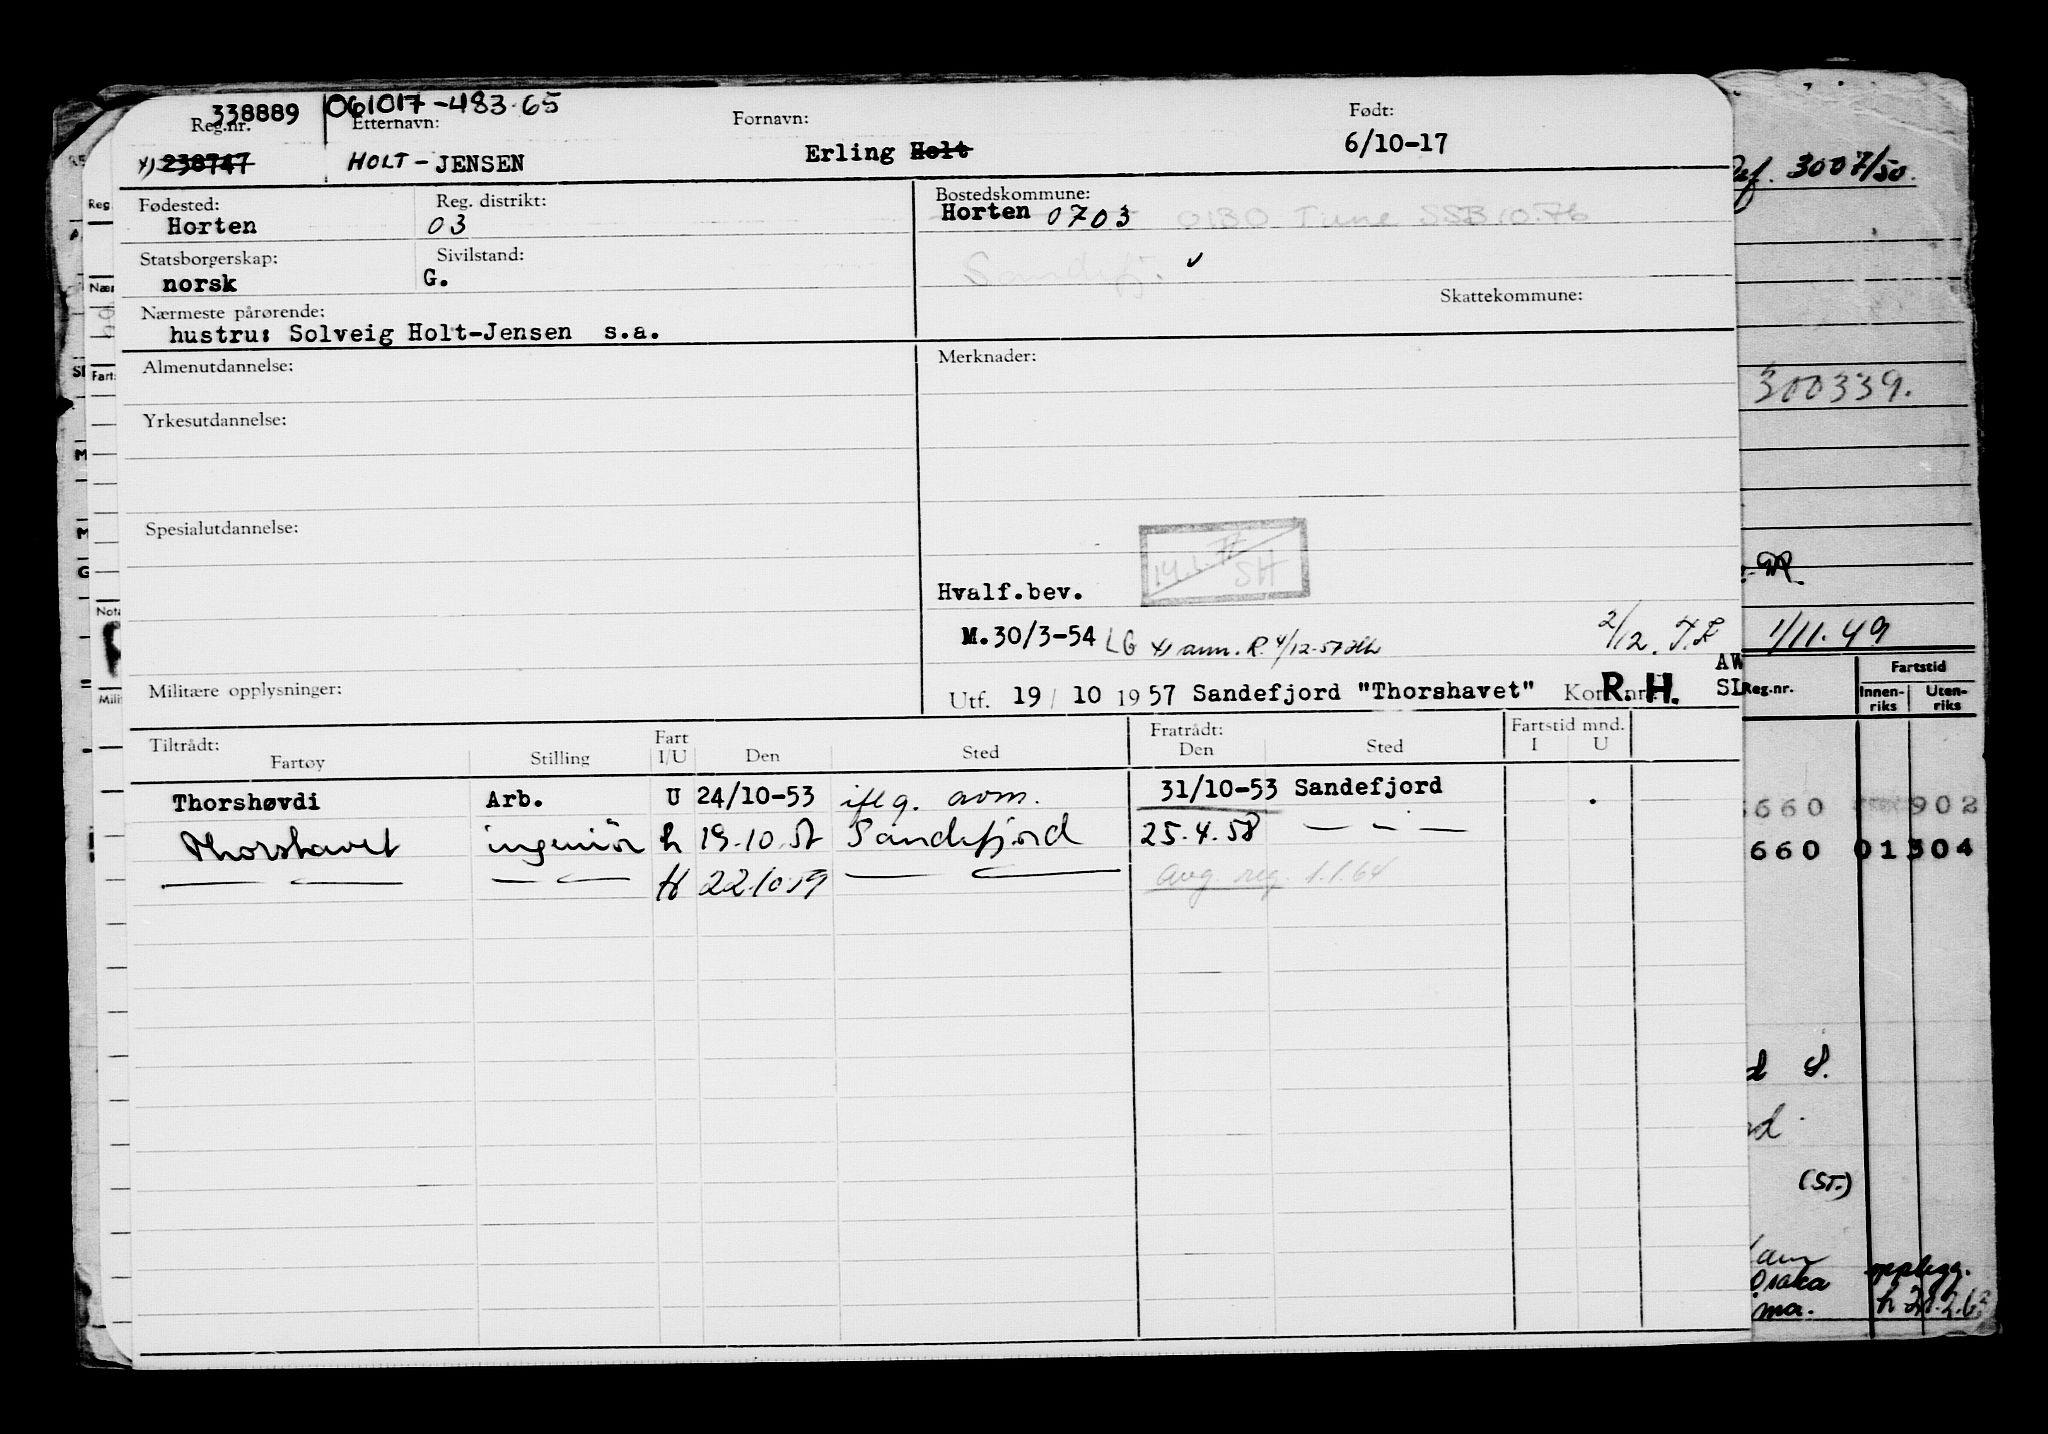 338889 061017-483.65
Reg.nr. Etternavn: Fornavn: Født:
x) 238747 HOLT-JENSEN Erling Holt 6/10-17
Fødested: Reg. distrikt: Bostedskommune:
Horten 03 Horten 0703 0130 Tune SSB 10.76
Statsborgerskap: Sivilstand: Sandefj.
norsk G.
Skattekommune:
Nærmeste pårørende:
hustru: Solveig Holt-Jensen s.a.
Almenutdannelse: Merknader:
Yrkesutdannelse:
Spesialutdannelse:
SH
Hvalf.bev.
M.30/3-54 LG x) ann. R. 4/12-57 2/12.
Militære opplysninger: Utf. 19/10 1957 Sandefjord "Thorshavet" Kort nr. R.H.
Tiltrådt: Fart Fratrådt: Fartstid mnd.
Fartøy Stilling I/U Den Sted Den Sted I U
Thorshøvdi Arb. U 24/10-53 iflg. avm. 31/10-53 Sandefjord
Thorshavet ingeniør h 19.10.57 Sandefjord 25.4.58 — - —
— — — — H 22.10.59 — — avg. reg. 1.1.64
3007/50.
300339.
1/11.49
AW
SL
Reg.nr.
Fartstid
Innen-
riks
Uten-
riks
660 902
660 01304
(ST.)
Osaka opplegg.
ma.
Reg
Nær
Farts
Nota
Mili